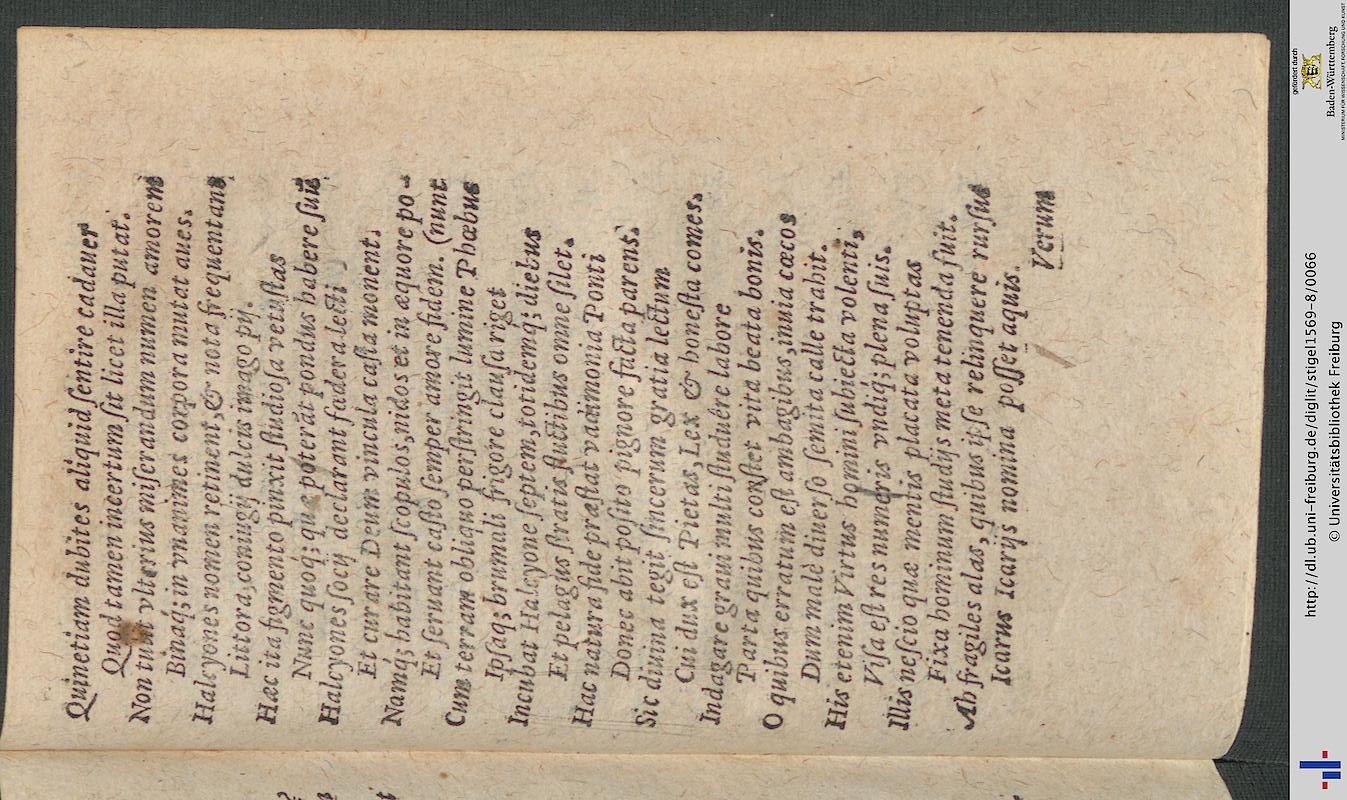 Quinetiam dubites aliquid sentire cadauer
Quod tamen incertum sit licet illa putat.
Non tulit vlterius miserandum numen amorem
Binaq; in vnanimes corpora mutat aues.
Halcyones nomen retinent, & nota frequentant
Littora, coniugij dulcis imago pij.
Hæc ita figmento pinxit studiosa vetustas
Nunc quoq; quæ poterāt pondus habere suū.
Halcyones socij declarant fœdera lecti
Et curare Deum vincula casta monent.
Namq; habitant scopulos, nidos et in æquore po-
Et seruant casto semper amore fidem. (nunt
Cum terram obliquo perstringit lumine Phœbus
Ipsaq; brumali frigore clausa riget
Incubat Halcyone septem, totidemq; diebus
Et pelagus stratis fluctibus omne silet.
Hac natura fide præstat vadimonia Ponti
Donec abit posito pignore facta parens.
Sic diuina tegit sincerum gratia lectum
Cui dux est Pietas, Lex & honesta comes.
Indagare graui multi studuêre labore
Parta quibus constet vita beata bonis.
O quibus erratum est ambagibus, inuia cœcos
Dum malè diuerso semita calle trahit.
His etenim Virtus homini subiecta volenti,
Visa est res numeris vndiq; plena suis.
Illis nescio quæ mentis placata voluptas
Fixa hominum studijs meta tenenda fuit.
Ah fragiles alas, quibus ipse relinquere rursus
Icarus Icarijs nomina posset aquis.
Verum
gefördert durch
Baden-Württemberg
MINISTERIUM FÜR WISSENSCHAFT, FORSCHUNG UND KUNST
http://dl.ub.uni-freiburg.de/diglit/stigel1569-8/0066
© Universitätsbibliothek Freiburg